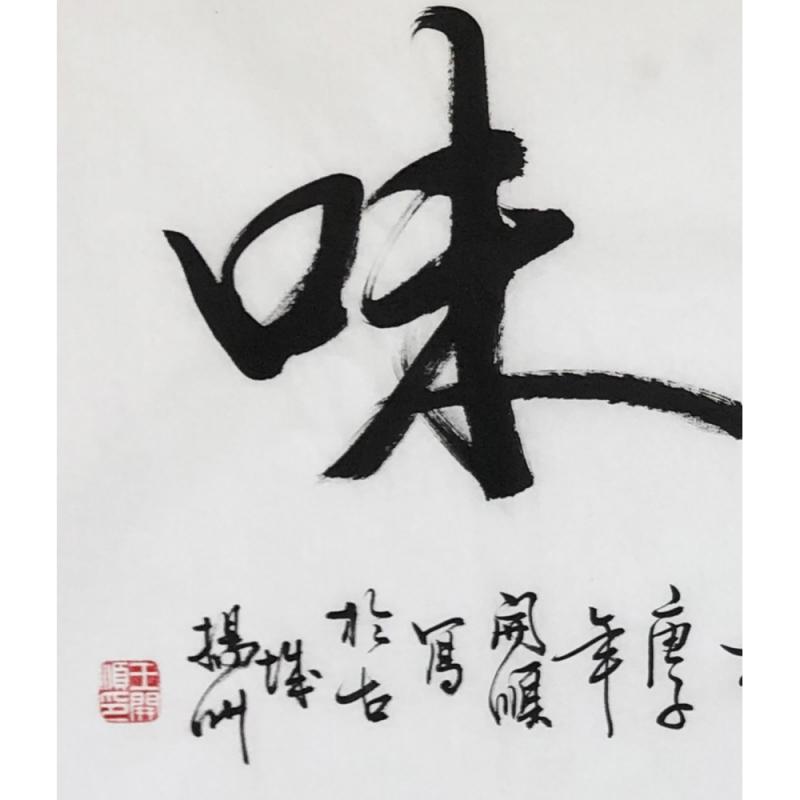 味
庚子
年
開順
寫
於古
城
揚州
王開
順印